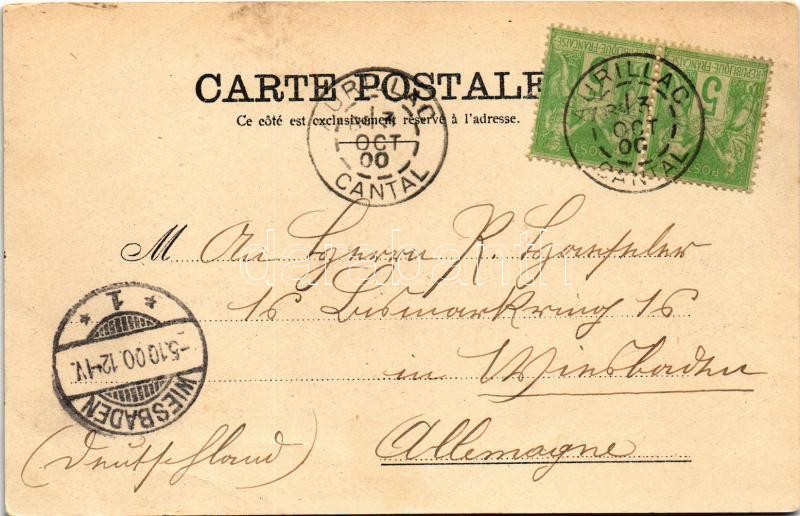 CARTE POSTALE
Ce côté est exclusivement réservé à l'adresse.
AURILLAC
13
OCT
00
CANTAL
5
REPUBLIQUE FRANCAISE
POSTES
AURILLAC
13
OCT
00
CANTAL
M An Herrn R.
16 Bismarkring 16
in Wiesbaden
Allemagne
(Deutschland)
* 1 *
-5.10.00.12-1V.
WIESBADEN
darabanth